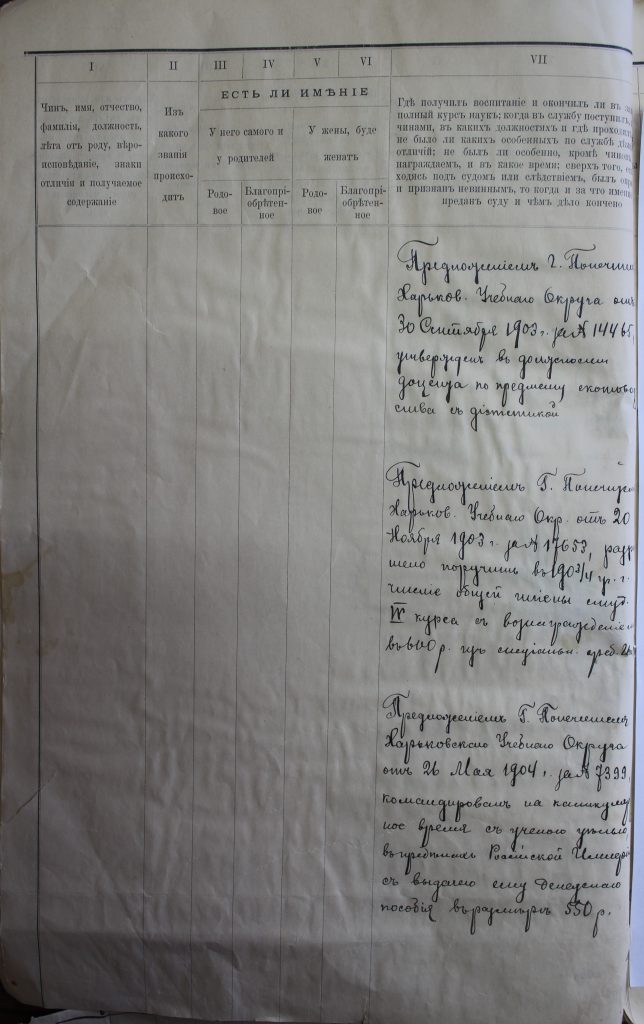 I II III IV V VI VII
Чинъ, имя, отчество,
фамилія, должность,
лѣта отъ роду, вѣро-
исповѣданіе, знаки
отличія и получаемое
содержаніе
Изъ
какого
званія
происхо-
дитъ
ЕСТЬ ЛИ ИМѢНІЕ
У него самого и
у родителей
У жены, буде
женатъ
Родо-
вое
Благопрі-
обрѣтен-
ное
Родо-
вое
Благопрі-
обрѣтен-
ное
Гдѣ получилъ воспитаніе и окончилъ ли въ за
полный курсъ наукъ; когда въ службу поступилъ,
чинами, въ какихъ должностяхъ и гдѣ проходилъ
не было ли какихъ особенныхъ по службѣ дѣя
отличій; не былъ ли особенно, кромѣ чиновъ
награждаемъ, и въ какое время; сверхъ того,
ходясь подъ судомъ или слѣдствіемъ, былъ опр
и признанъ невиннымъ, то когда и за что именно
преданъ суду и чѣмъ дѣло кончено
Предложеніемъ Г. Попечител
Харьков. Учебнаго Округа отъ
30 Сентября 1903 г. за № 14465,
утвержденъ въ должности
доцента по предмету скотовод
ства съ діэтетикой
Предложеніемъ Г. Попечител
Харьков. Учебнаго Окр. отъ 20
Ноября 1903 г. за № 17653, разр
шено поручить въ 1903/4 уч. г.
чтеніе общей гигіены студ.
IV курса съ вознагражденіемъ
въ 600 р. изъ спеціальн. сред.
Предложеніемъ Г. Попечителя
Харьковскаго Учебнаго Округа
отъ 26 Мая 1904 г. за № 7399,
командированъ на каникуляр
ное время съ ученою цѣлью
въ предѣлахъ Россійской Имперіи
съ выдачею ему денежнаго
пособія въ размѣрѣ 550 р.